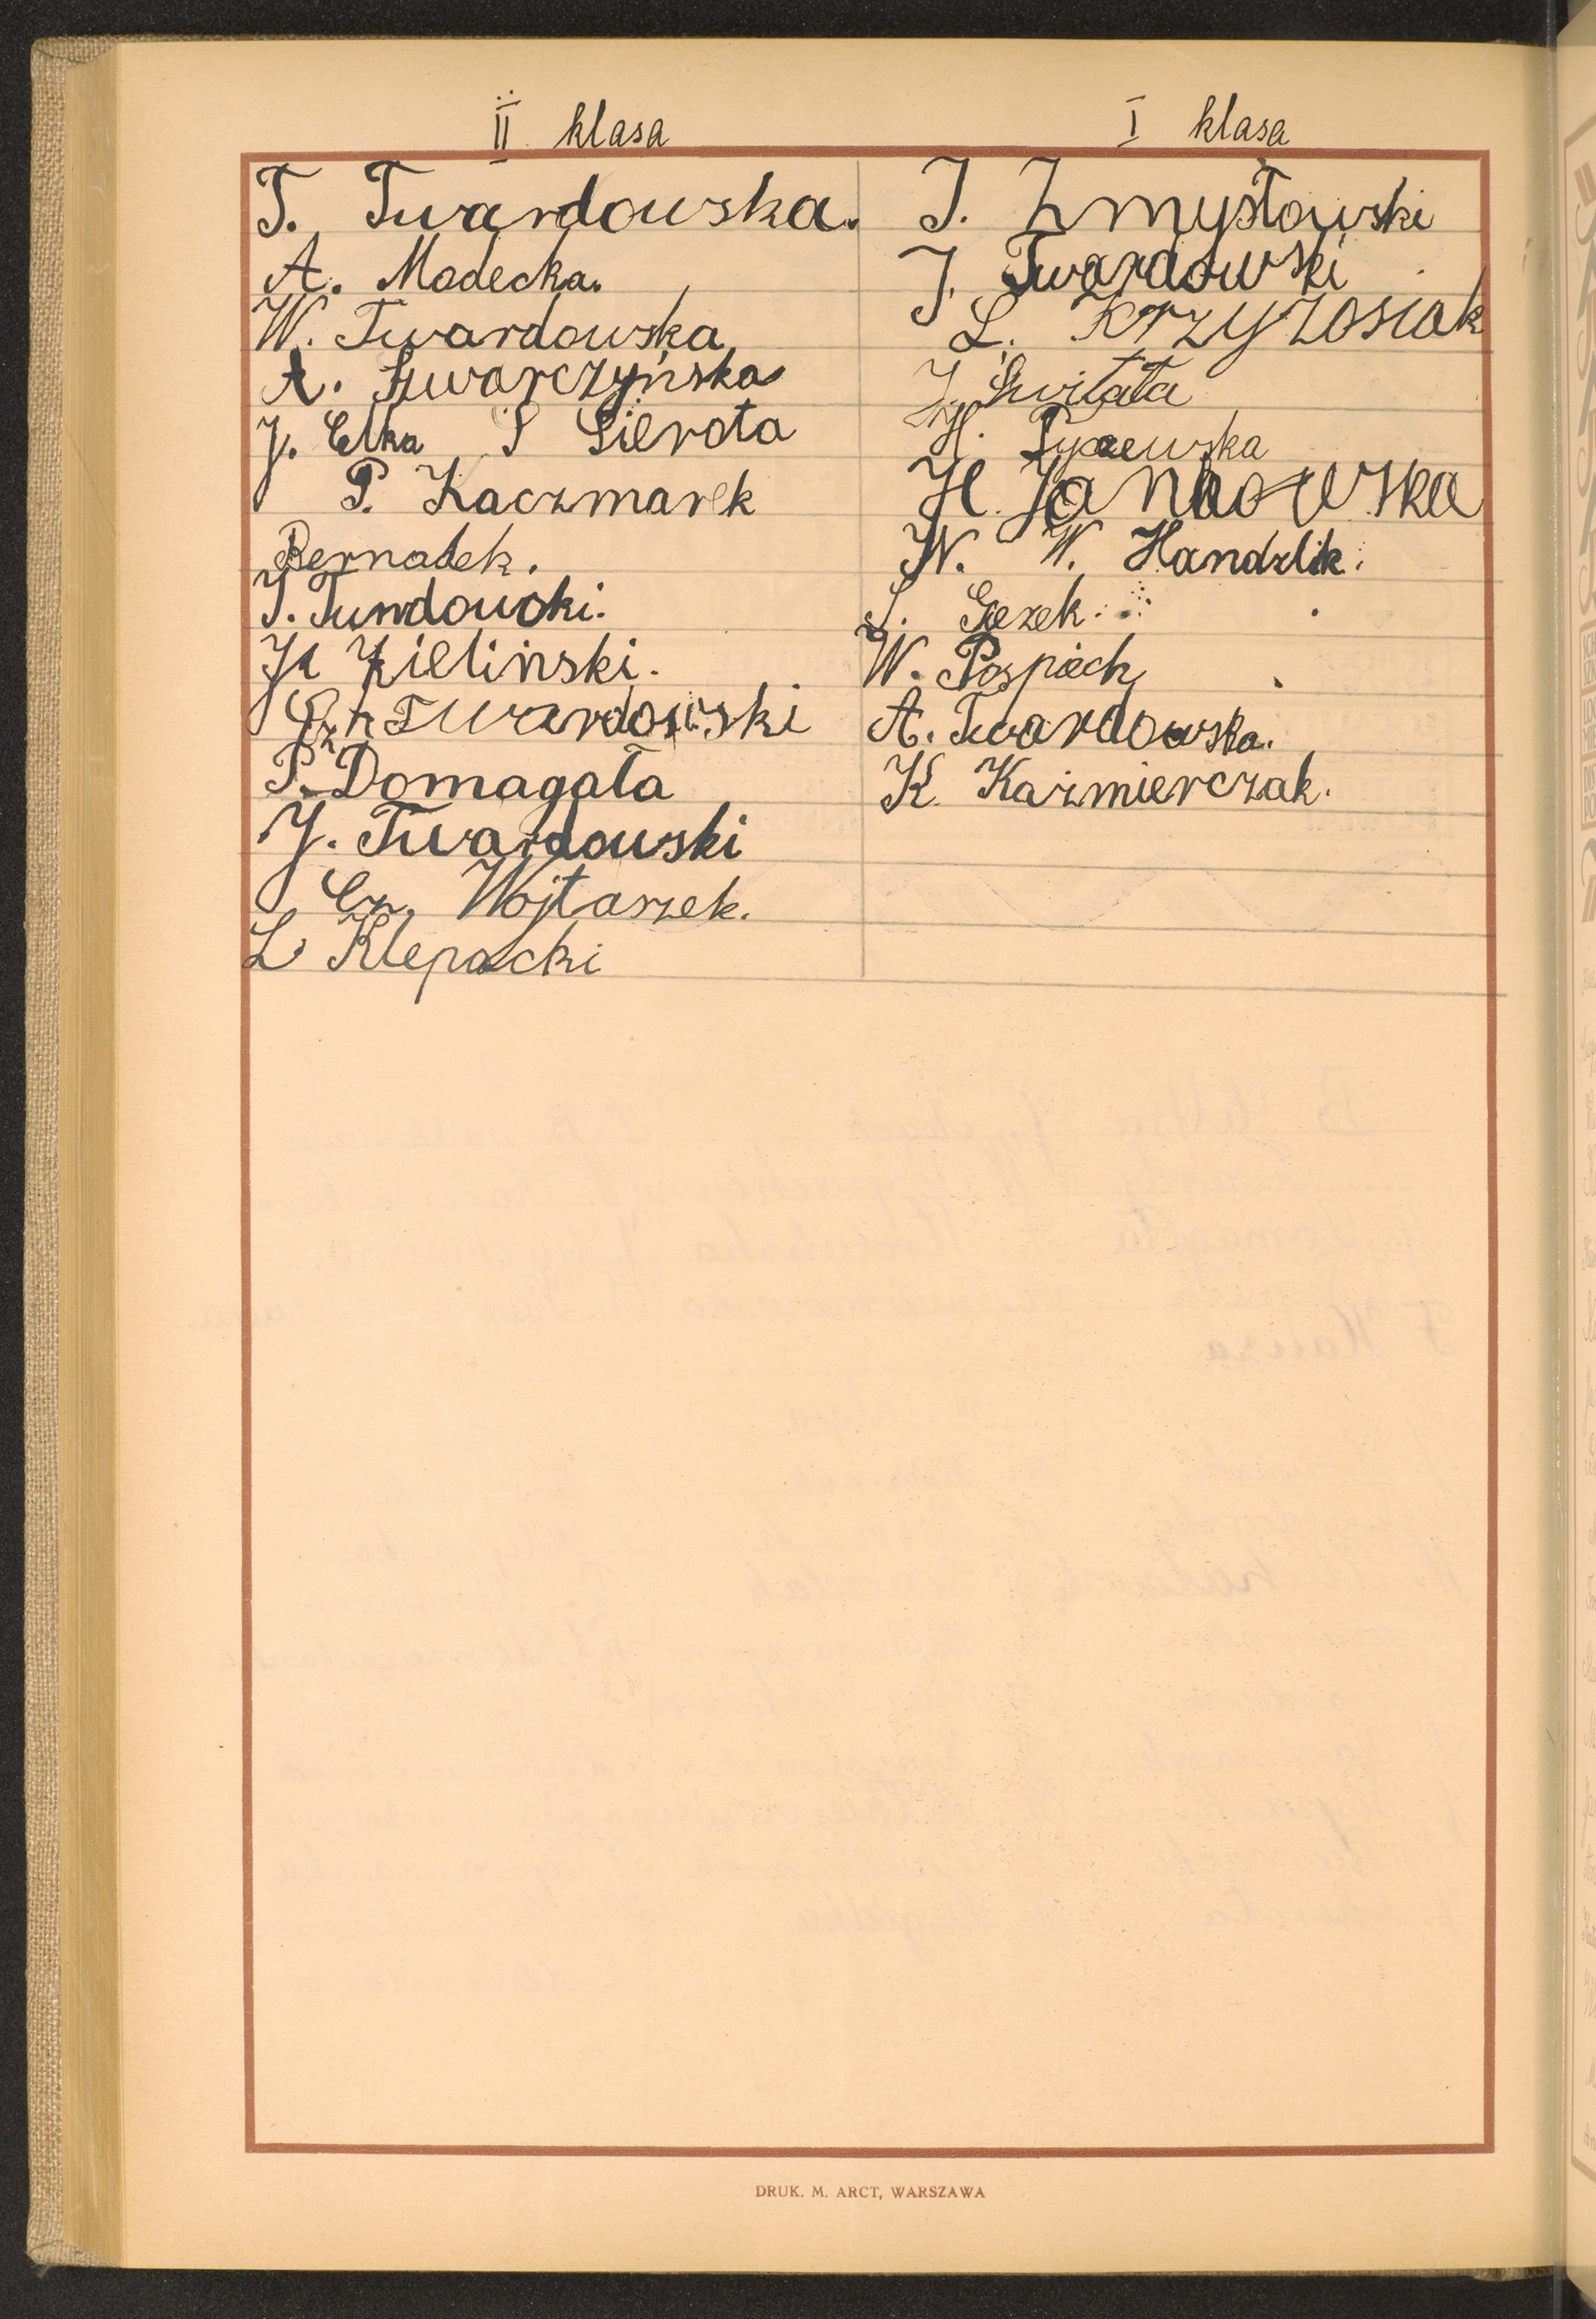 II klasa
T. Twardowska.
A. Madecka.
W. Twardowska
A. Szwarczyńska
J. Elka S Sierota
P. Kaczmarek
Bernadek.
Zieliński.
Twardowski
P. Domagała
J. Twardowski
Cz. Wojtaszek.
L Klepacki
I klasa
J. Zmysłowski
J. Twardowski
L. Krzyżosiak
J. Świtała
H.
H. Jankowska
W. W. Handzlik.
W. Pospiech
A. Twardowska.
K. Kaźmierczak.
DRUK. M. ARCT, WARSZAWA